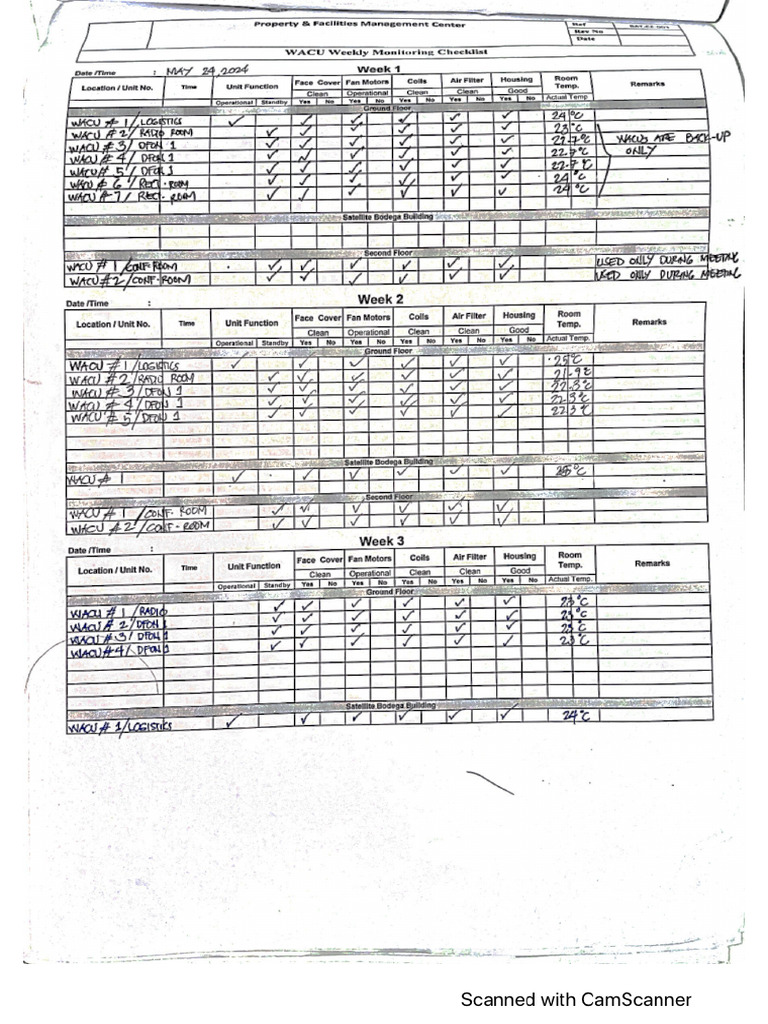 Property & Facilities Management Center
Ref
Rev No
Date
WACU Weekly Monitoring Checklist
Date /Time : MAY 24, 2024
Week 1
Location / Unit No. Time Unit Function Face Cover Fan Motors Coils Air Filter Housing Room Temp. Remarks
Clean Operational Clean Clean Good
Operational Standby Yes No Yes No Yes No Yes No Yes No Actual Temp
Ground Floor
WACU # 1 / LOGISTICS ✓ ✓ ✓ ✓ ✓ ✓ 24°C
WACU # 2 / RADIO ROOM ✓ ✓ ✓ ✓ ✓ ✓ 23°C
WACU # 3 / DFON 1 ✓ ✓ ✓ ✓ ✓ ✓ 22.7°C WACUS ARE BACK-UP
WACU # 4 / DFON 1 ✓ ✓ ✓ ✓ ✓ ✓ 22.7°C ONLY
WACU # 5 / DFON 1 ✓ ✓ ✓ ✓ ✓ ✓ 22.7°C
WACU # 6 / RECT. ROOM ✓ ✓ ✓ ✓ ✓ ✓ 24°C
WACU # 7 / RECT. ROOM ✓ ✓ ✓ ✓ ✓ ✓ 24°C
Satellite Bodega Building
Second Floor
WACU # 1 / CONF. ROOM ✓ ✓ ✓ ✓ ✓ ✓ USED ONLY DURING MEETING
WACU # 2 / CONF. ROOM ✓ ✓ ✓ ✓ ✓ ✓ USED ONLY DURING MEETING
Week 2
Date /Time :
Location / Unit No. Time Unit Function Face Cover Fan Motors Coils Air Filter Housing Room Temp. Remarks
Clean Operational Clean Clean Good
Operational Standby Yes No Yes No Yes No Yes No Yes No Actual Temp.
Ground Floor
WACU # 1 / LOGISTICS ✓ ✓ ✓ ✓ ✓ ✓ 25°C
WACU # 2 / RADIO ROOM ✓ ✓ ✓ ✓ ✓ ✓ 21.9°C
WACU # 3 / DFON 1 ✓ ✓ ✓ ✓ ✓ ✓ 22.3°C
WACU # 4 / DFON 1 ✓ ✓ ✓ ✓ ✓ ✓ 22.3°C
WACU # 5 / DFON 1 ✓ ✓ ✓ ✓ ✓ ✓ 22.3°C
Satellite Bodega Building
WACU # 1 ✓ ✓ ✓ ✓ ✓ ✓ 25°C
Second Floor
WACU # 1 / CONF. ROOM ✓ ✓ ✓ ✓ ✓ ✓
WACU # 2 / CONF. ROOM ✓ ✓ ✓ ✓ ✓ ✓
Week 3
Date /Time :
Location / Unit No. Time Unit Function Face Cover Fan Motors Coils Air Filter Housing Room Temp. Remarks
Clean Operational Clean Clean Good
Operational Standby Yes No Yes No Yes No Yes No Yes No Actual Temp.
Ground Floor
WACU # 1 / RADIO ✓ ✓ ✓ ✓ ✓ ✓ 23°C
WACU # 2 / DFON 1 ✓ ✓ ✓ ✓ ✓ ✓ 23°C
WACU # 3 / DFON 1 ✓ ✓ ✓ ✓ ✓ ✓ 23°C
WACU # 4 / DFON 1 ✓ ✓ ✓ ✓ ✓ ✓ 23°C
Satellite Bodega Building
WACU # 1 / LOGISTICS ✓ ✓ ✓ ✓ ✓ ✓ 24°C
Scanned with CamScanner